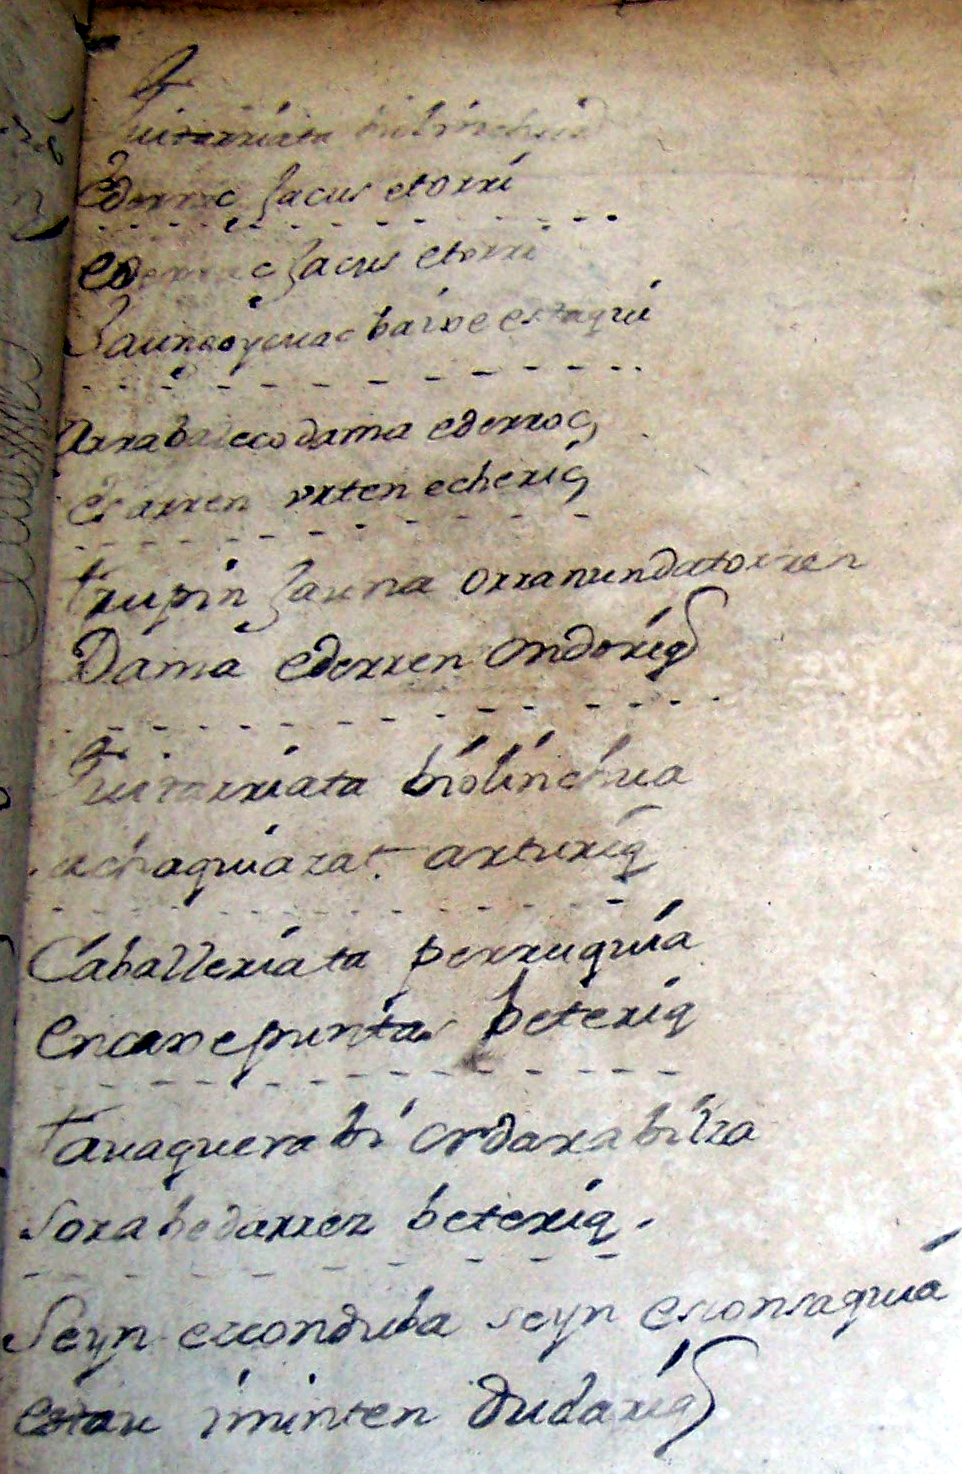 Guitarriata biolinchua
Ederrac Jacus etorri
Ederrac Jacus etorri
Jaungoycuac baixe estaqui
Arrabaleco dama ederroc,
Escarren urten echeriq,
Trupin Jauna orra nun datorren
Dama ederren ondoriq
Guitarriata biolinchua
achaquiazat arturiq
Caballeriata perruquia
encaxe puntas beteriq
tauaquera bi ordaxa bilza
Sorabedarrez beteriq.
Seyn esconduba seyn esconsaquia
estau iminten dudariq